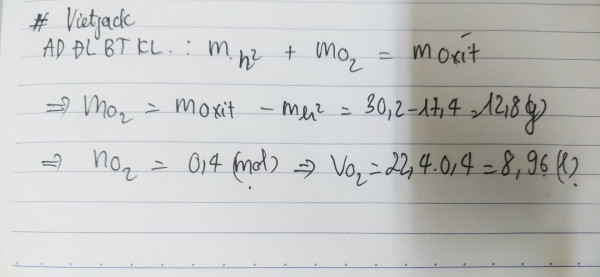 # Vietjack
AD ĐL BT KL : m h² + mO₂ = m oxit
=> mO₂ = m oxit - m h² = 30,2 - 17,4 = 12,8 (g)
=> nO₂ = 0,4 (mol) => VO₂ = 22,4.0,4 = 8,96 (l).